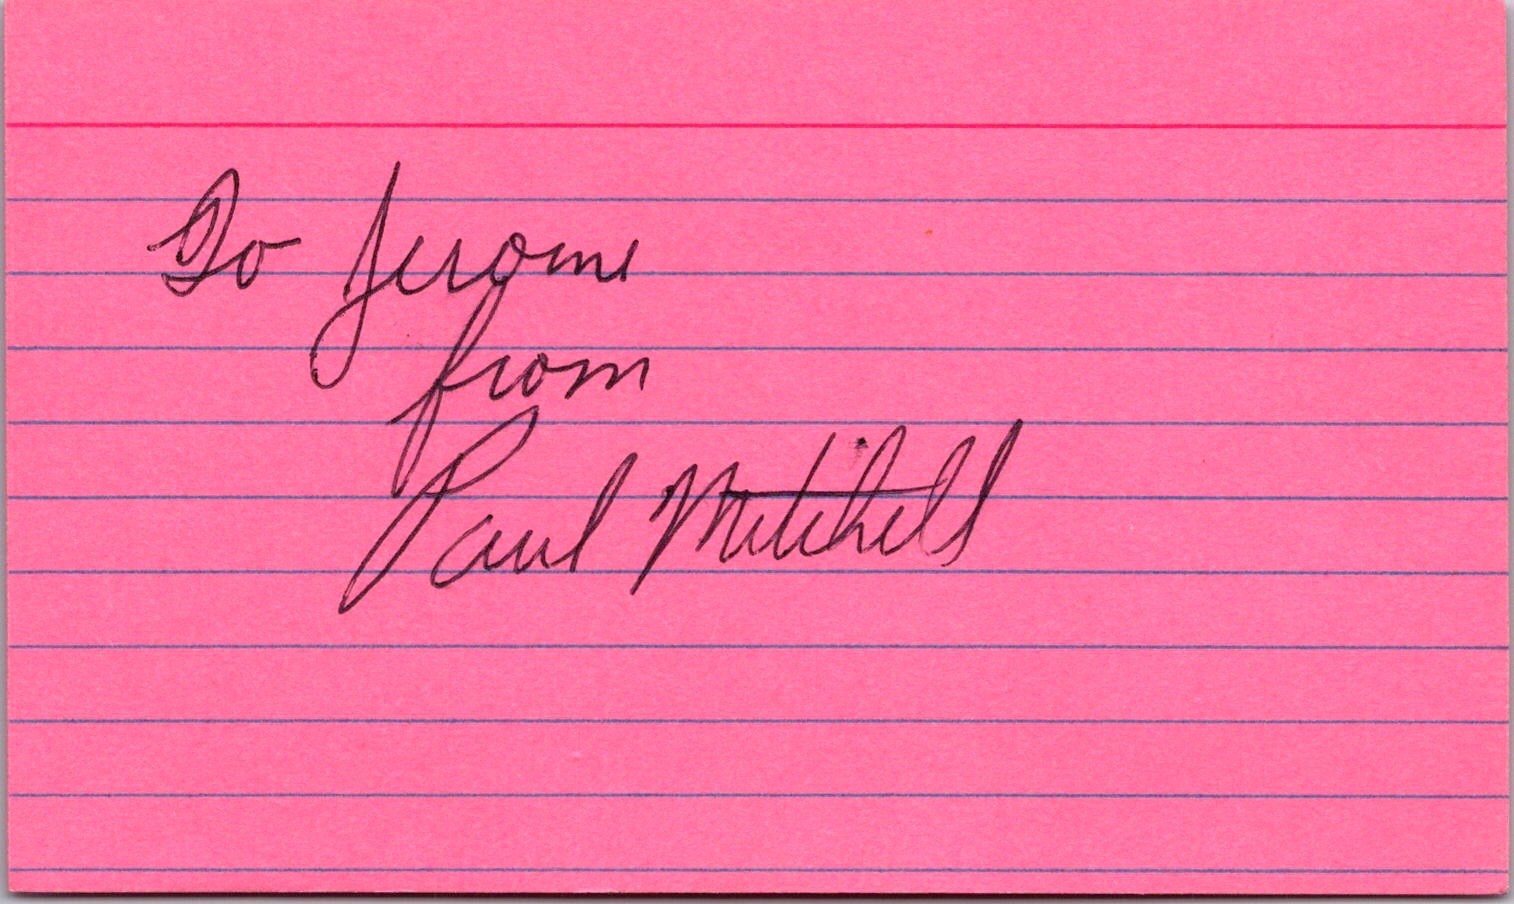 To Jerome
from
Paul Mitchell